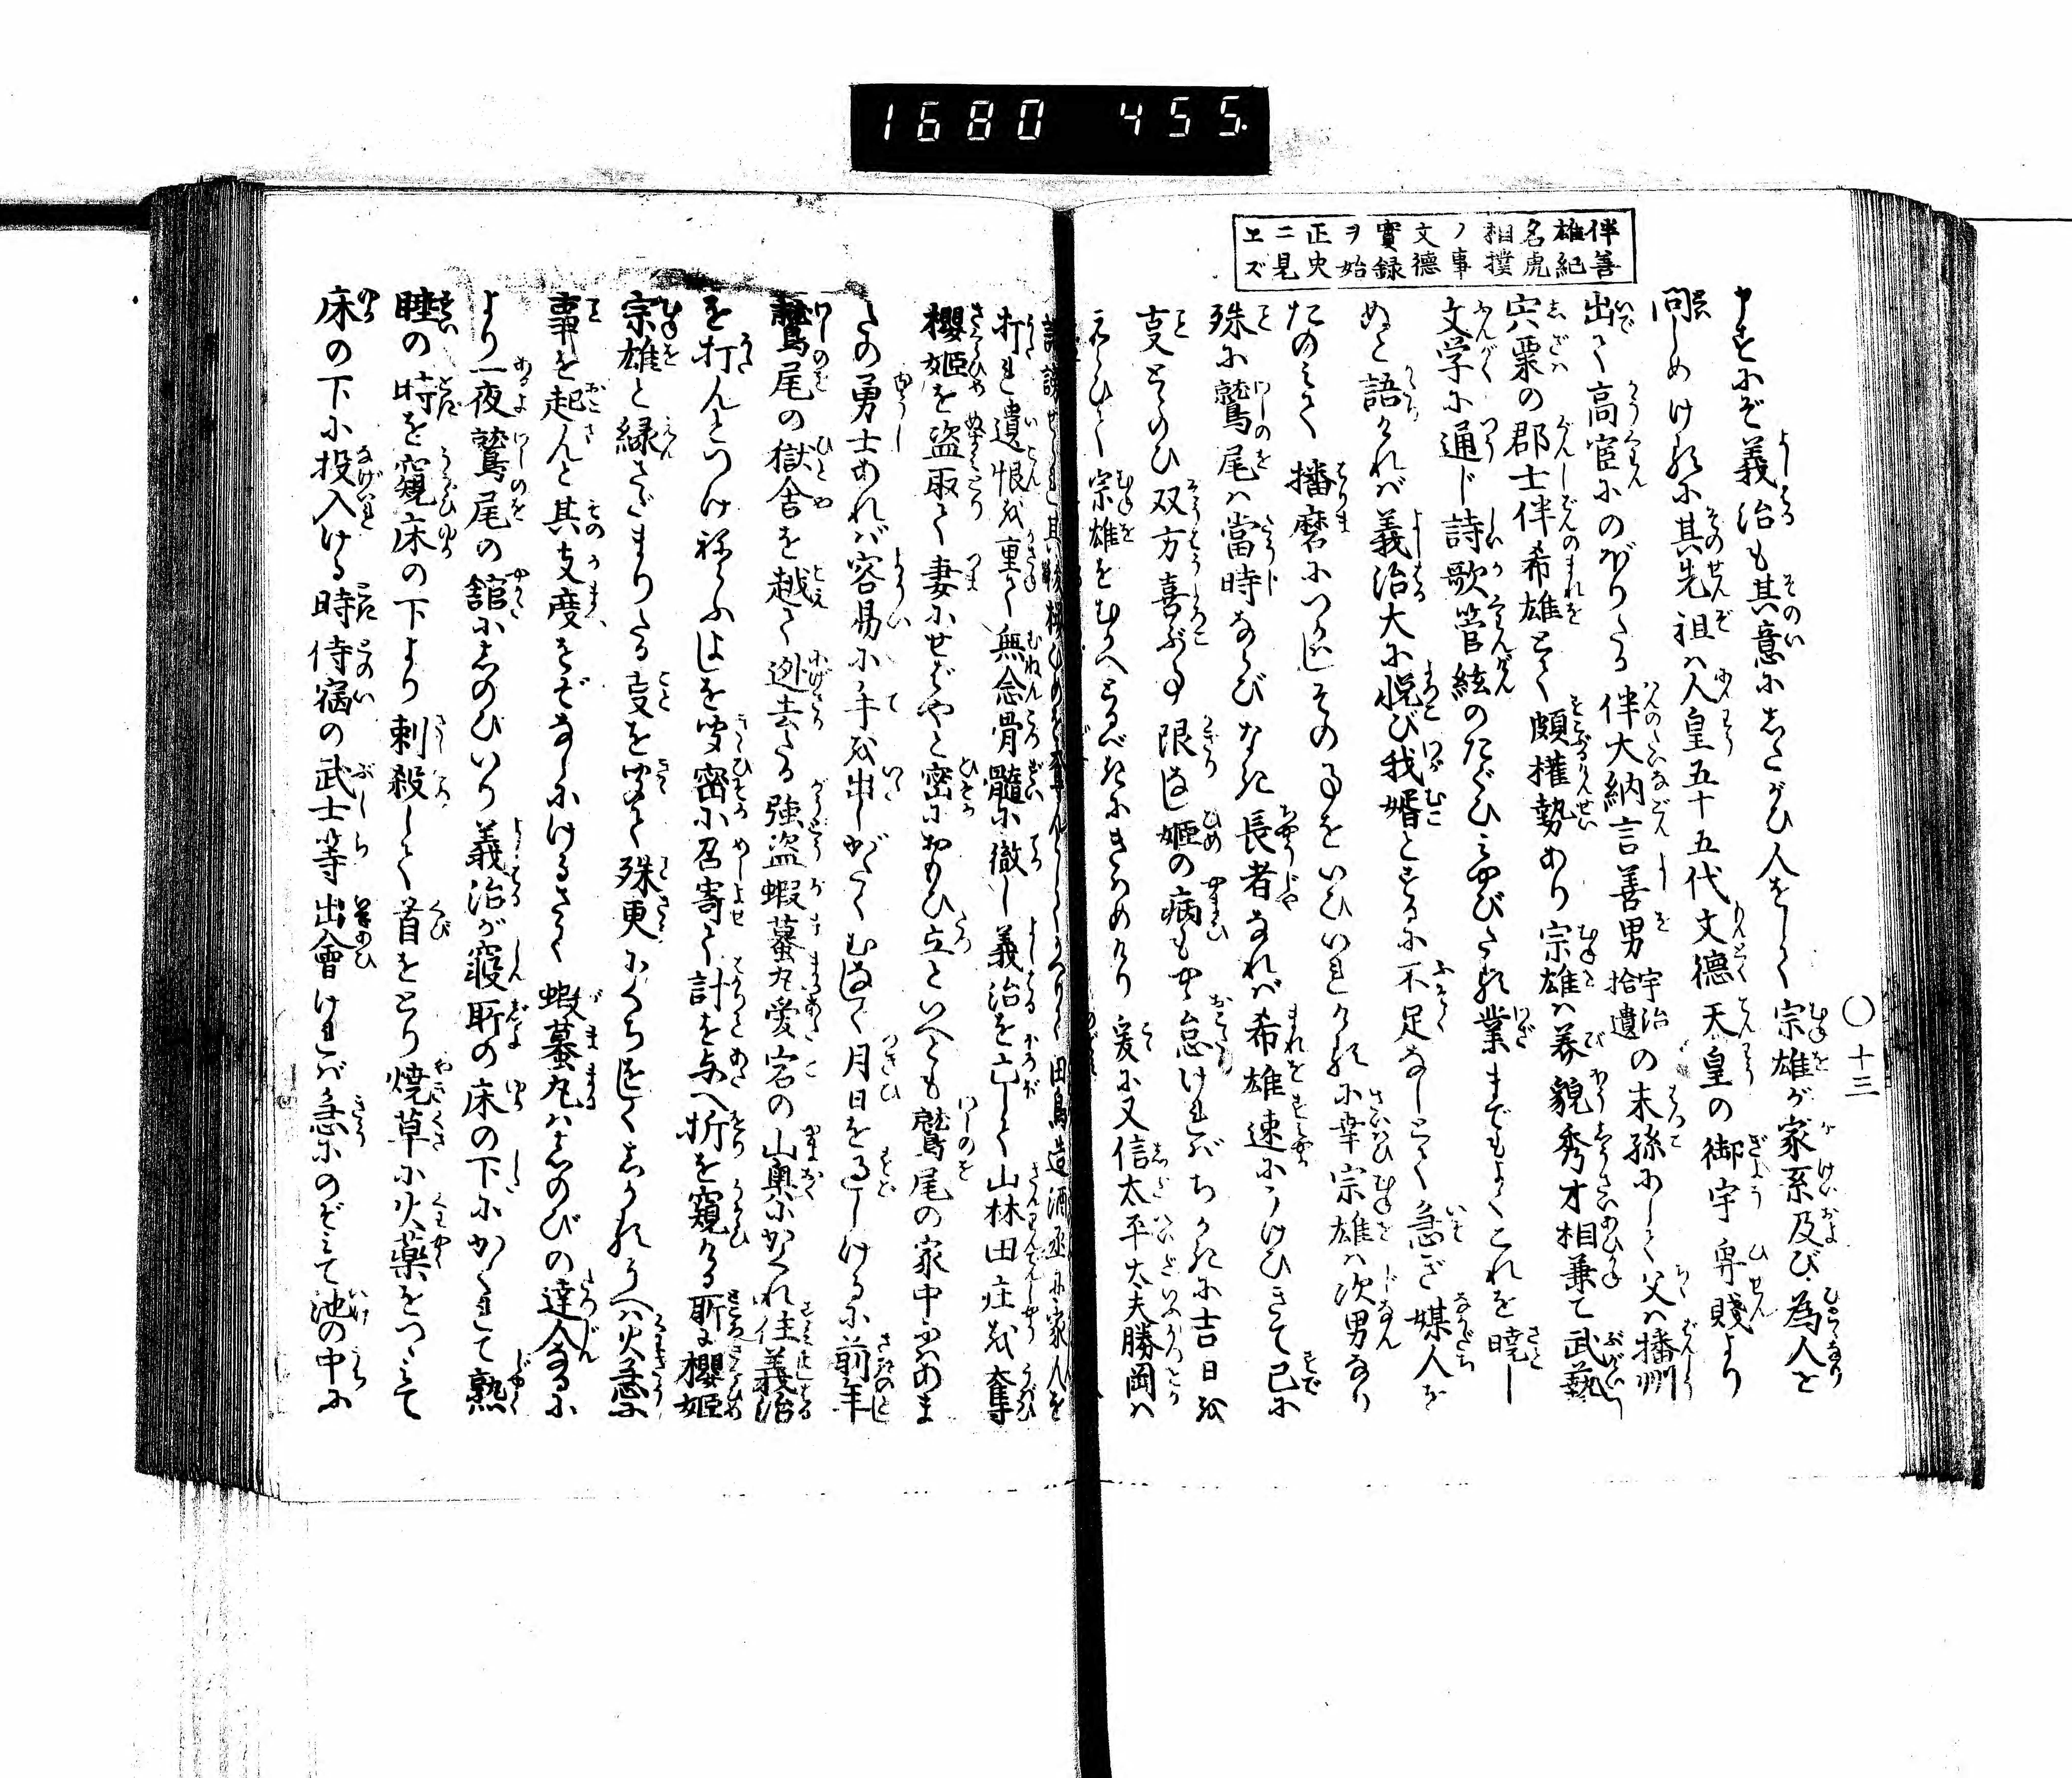 1680 455.
伴善
雄紀
名虎
相撲
ノ事
文徳
實録
ヲ始
正史
ニ見
エズ
○十三
申すにぞ義治も其意にしたがひ人をして宗雄が家系及び為人を
問しめけるに其先祖ハ人皇五十五代文徳天皇の御宇卑賤より
出て高官にのぼりたる伴大納言善男宇治拾遺の末孫にして父ハ播州
宍粟の郡士伴希雄とて頗権勢あり宗雄ハ美貌秀才相兼て武藝
文学に通じ詩歌管絃のたぐひ鄙びたる業までもよくこれを暁し
ぬと語りければ義治大に悦び我婿とするに不足なしとて急ぎ媒人を
たのみて播磨につかはしその事をいひいれけるに幸宗雄ハ次男なり
殊に鷲尾ハ當時ならびなき長者なれバ希雄速にうけひきて已に
事とゝのひ双方喜ぶ事限なし姫の病もやゝ怠けれバちかきに吉日を
えらひて宗雄をむかへとるべきにきはめけり爰に又信太平太夫勝岡ハ
打れ遺恨を重て無念骨髓に徹し義治を亡して山林田庄を奪
櫻姫を盗取て妻にせばやと密におもひ立といへども鷲尾の家中にハあま
たの勇士あれバ容易に手を出しがたくむなしく月日を過しけるに前年
鷲尾の獄舎を越て迯去たる強盗蝦蟇丸愛宕の山奥にかくれ住義治
を打んとつけねらふよしを聞密に召寄て計を与へ折を窺ける所に櫻姫
宗雄と縁さだまりたる事を聞て殊更にくちをしくおもひうへハ火急に
事を起んと其支度をぞなしにけるさて蝦蟇丸ハしのびの達人なるに
より一夜鷲尾の舘にしのびいり義治が寝所の床の下にかくれて熟
睡の時を窺床の下より刺殺して首をとり焼草に火薬をつゝみて
床の下に投入ける時侍宿の武士等出會けれバ急にのがれて池の中に